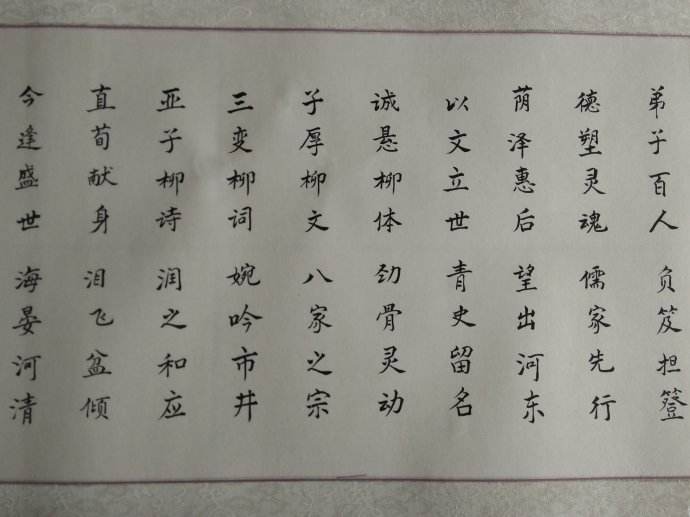 弟子百人 负笈担簦
德塑灵魂 儒家先行
荫泽惠后 望出河东
以文立世 青史留名
诚悬柳体 劲骨灵动
子厚柳文 八家之宗
三变柳词 婉吟市井
亚子柳诗 润之和应
直荀献身 泪飞盆倾
今逢盛世 海晏河清